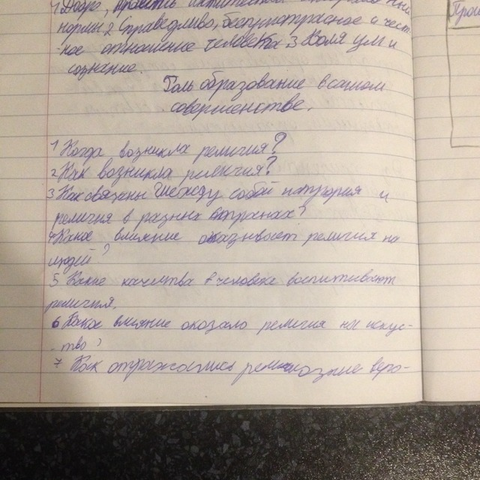 нормы 2 Справедливо, беспристрастное и чест
ное отношение человека 3 Воля ум и
сознание.
Роль образование в самом
совершенстве.
1 Когда возникла религия?
2 Как возникла религия?
3 Как связаны между собой и
религия в разных странах?
4 Какое влияние оказывает религия на
людей?
5 Какие качества в человеке воспитывает
религия.
6 Какое влияние оказало религия на искус-
тво?
7 Как отражались религиозные веро-
Прои